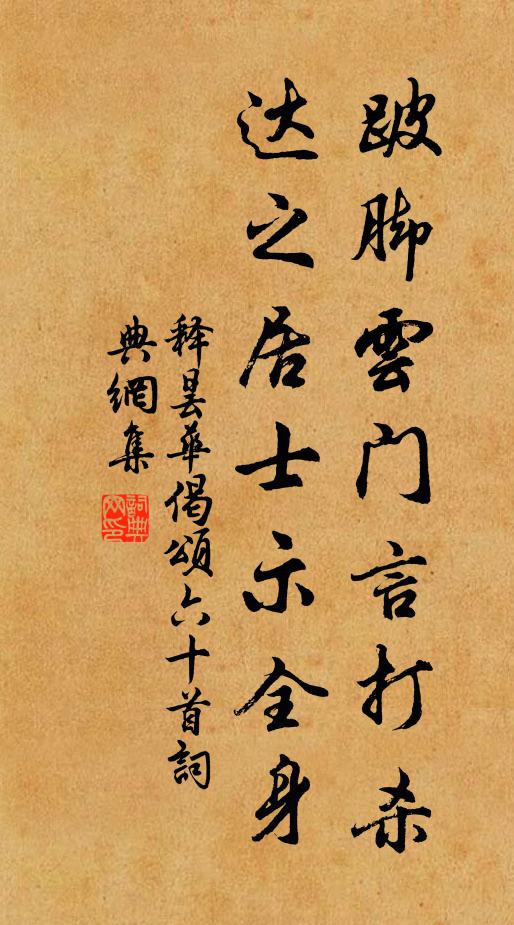 跛脚雲门言打杀
达之居士示全身
释昙华偈頌六十首詞
典網集
詞典网印